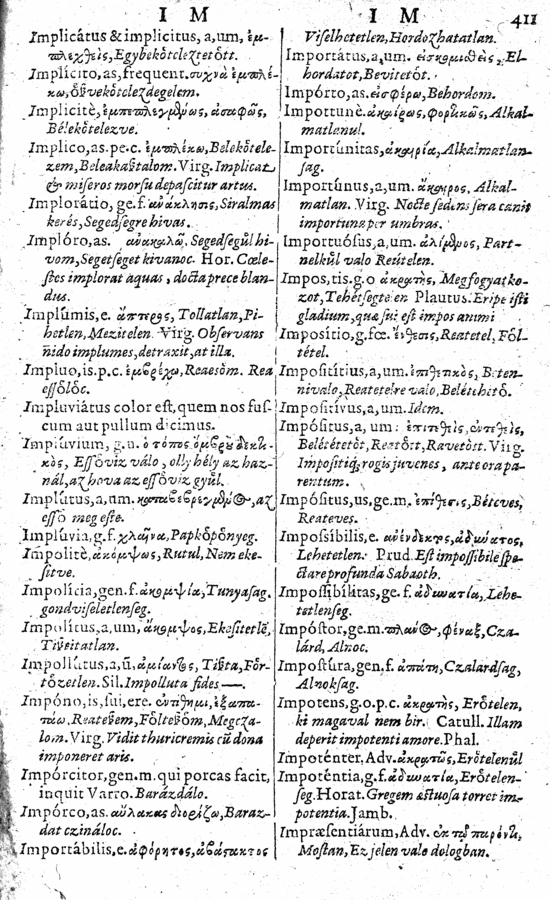 I M
I M 411
Implicâtus & implicitus, a, um, ἐμ-
πλεχθεὶς, Egybekötcleztetött.
Implícito, as, frequent. συχνὰ ἐμπλέ-
κω, öszvekötclezdegelem.
Implicitè, ἐμπεπλεγμένως, ἀσαφῶς,
Bélekötelezve.
Implico, as. pe. c. ἐμπλέκω, Belekötele-
zem, Beleakasztalom. Virg. Implicat
& miseros morsu depascitur artus.
Implorátio, ge. f. ἀνάκλησις, Siralmas
kerés, Segedsegre hivas.
Implóro, as. ἀνακαλῶ, Segedsegül hi-
vom, Segetseget kivanoc. Hor. Cœle-
stes implorat aquas, docta prece blan-
dus.
Implúmis, e. ἄπτερος, Tollatlan, Pi-
hetlen, Mezitelen. Virg. Observans
nido implumes, detraxit, at illa.
Impluo, is. p. c. ἐμβρέχω, Reaesöm. Rea
essölöc.
Impluviâtus color est, quem nos fus-
cum aut pullum dicimus.
Implúvium, g. n. ὁ τόπος ὄμβρου δεκτι-
κὸς, Essöviz váló, olly hély az haz-
nál, az hova az essöviz gyül.
Implútus, a, um. καταβεβρεγμένος, az
essö meg este.
Implúvia, g. f. χλαῖνα, Papköpönyeg.
Impolitè, ἀκόμψως, Rutul, Nem eke-
sitve.
Impolícia, gen. f. ἀκομψία, Tunyasag.
gondviseletlenseg.
Impolítus, a, um, ἄκομψος, Ekesitetlē,
Tisztitatlan.
Impollútus, a, ū, ἀμίαντος, Tiszta, För-
tözetlen. Sil. Impolluta fides —.
Impóno, is, sui, ere. ἐντίθημι, ἐξαπα-
τάω, Reateszem, Föltesz̈öm, Megcza-
lom. Virg. Vidit thuricremis cū dona
imponeret aris.
Impórcitor, gen. m. qui porcas facit,
inquit Varro. Barázdáló.
Impórco, as. αὔλακας διορίζω, Baraz-
dat czináloc.
Importábilis, e. ἀφόρητος, ἀβάστακτος
Viselhetetlen, Hordozhatatlan.
Importátus, a, um. εἰσκομισθεὶς, El-
hordatot, Bevitetöt.
Impórto, as. εἰσφέρω, Behordom.
Importunè. ἀκαίρως, φορτικῶς, Alkal-
matlanul.
Importúnitas, ἀκαιρία, Alkalmatlan-
sag.
Importúnus, a, um. ἄκαιρος, Alkal-
matlan. Virg. Nocte sedens sera canit
importuna per umbras.
Importuósus, a, um. ἀλίμενος, Part-
nelkül valo Reütelen.
Impos, tis. g. o ἀκρατὴς, Megfogyatko-
zot, Tehétsegteen Plautus. Eripe isti
gladium, quæ sui est impos animi
Imposítio, g. fœ. ἔνθεσις, Reatetel, Föl-
tétel.
Impositítius, a, um. ἐπιθετικὸς, Beten-
nivalo, Reatetelre valo, Belétehitö.
Impositívus, a, um. Idem.
Impósitus, a, um: ἐπιτεθεὶς, ἐντεθεὶς,
Belététetöt, Reatött, Ravetött. Virg.
Impositiq; rogis juvenes, ante ora pa-
rentum.
Impósitus, us, ge. m. ἐπίθεσις, Béteves,
Reateves.
Impossíbilis, e. ἀνένδεκτος, ἀδύνατος,
Lehetetlen. Prud. Est impossibile spe-
ctare profunda Sabaoth.
Impossibílitas, ge. f. ἀδυνατία, Lehe-
tetlenseg.
Impóstor, ge. m. πλάνος, φέναξ, Cza-
lárd, Alnoc.
Impostúra, gen. f. ἀπάτη, Czalardsag,
Alnoksag.
Impotens, g. o. p. c. ἀκρατὴς, Erötelen,
ki magaval nem bir. Catull. Illam
deperit impotenti amore. Phal.
Impoténter, Adv. ἀκρατῶς, Erötelenül
Impoténtia, g. f. ἀδυνατία, Erötelen-
seg. Horat. Gregem æstuosa torret im-
potentia. Jamb.
Impræsentiárum, Adv. ἐκ τοῦ παρόντος,
Mostan, Ez jelen vale dologban.